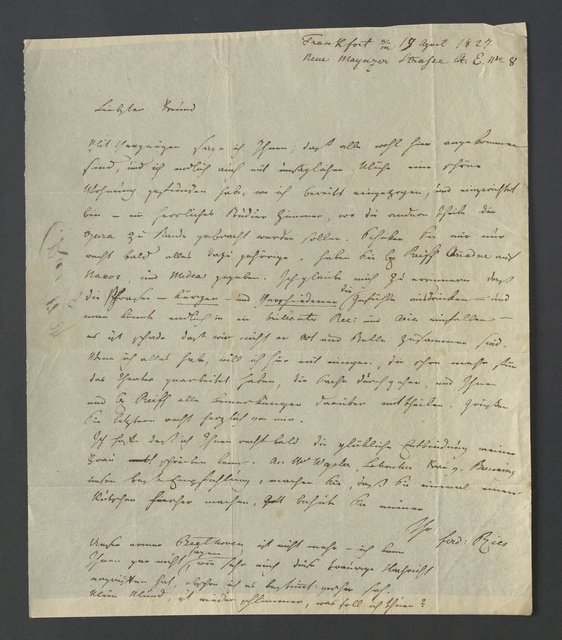 Frankfort a/m 17 April 1827
Neue Maynzer Strasse Lit. E. Nro 8
Liebster Freund
Mit Vergnügen sage ich Ihnen, daß alle wohl hier angekommen
sind, und ich endlich auch mit unsäglicher Mühe eine schöne
Wohnung gefunden habe, wo ich bereits eingezogen, und eingerichtet
bin – ein herrliches Studier Zimmer, wo die andern Theile der
Opera zu Stande gebracht werden sollen. Schicken Sie mir nur
recht bald alles dazu gehörige. Haben Sie H Reiff Ariadne auf
Naxos, und Medea gegeben. Ich glaube mich zu erinnern daß
die Phrasen – kürzer – und verschiedener die Gefühle ausdrücken – und
man könnte endlich in ein brillantes Rec: und Aria einfallen –
es ist schade daß wir nicht an Ort und Stelle zusammen sind.
Wenn ich alles habe, will ich hier mit einigen, die schon mehr für
das Theater gearbeitet haben, die Sache durchgehen, und Ihnen
und H Reiff alle Bemerkungen darüber mittheilen. Grüßen
Sie letztern recht herzlich von mir.
Ich hoffe daß ich Ihnen recht bald die glückliche Entbindung meiner
Frau schreiben kann. An Wegeler, Frau v. Breuning
unsere beste Empfehlung, machen Sie, daß Sie einmal einen
machen, Gott behüte Sie immer
Ihr ferd: Ries
Unser armer Beethoven ist nicht mehr – ich kann
Ihnen gar nicht sagen wie sehr mich diese traurige Nachricht
ergriffen hat,
ist wieder schlimmer, was soll ich thun?